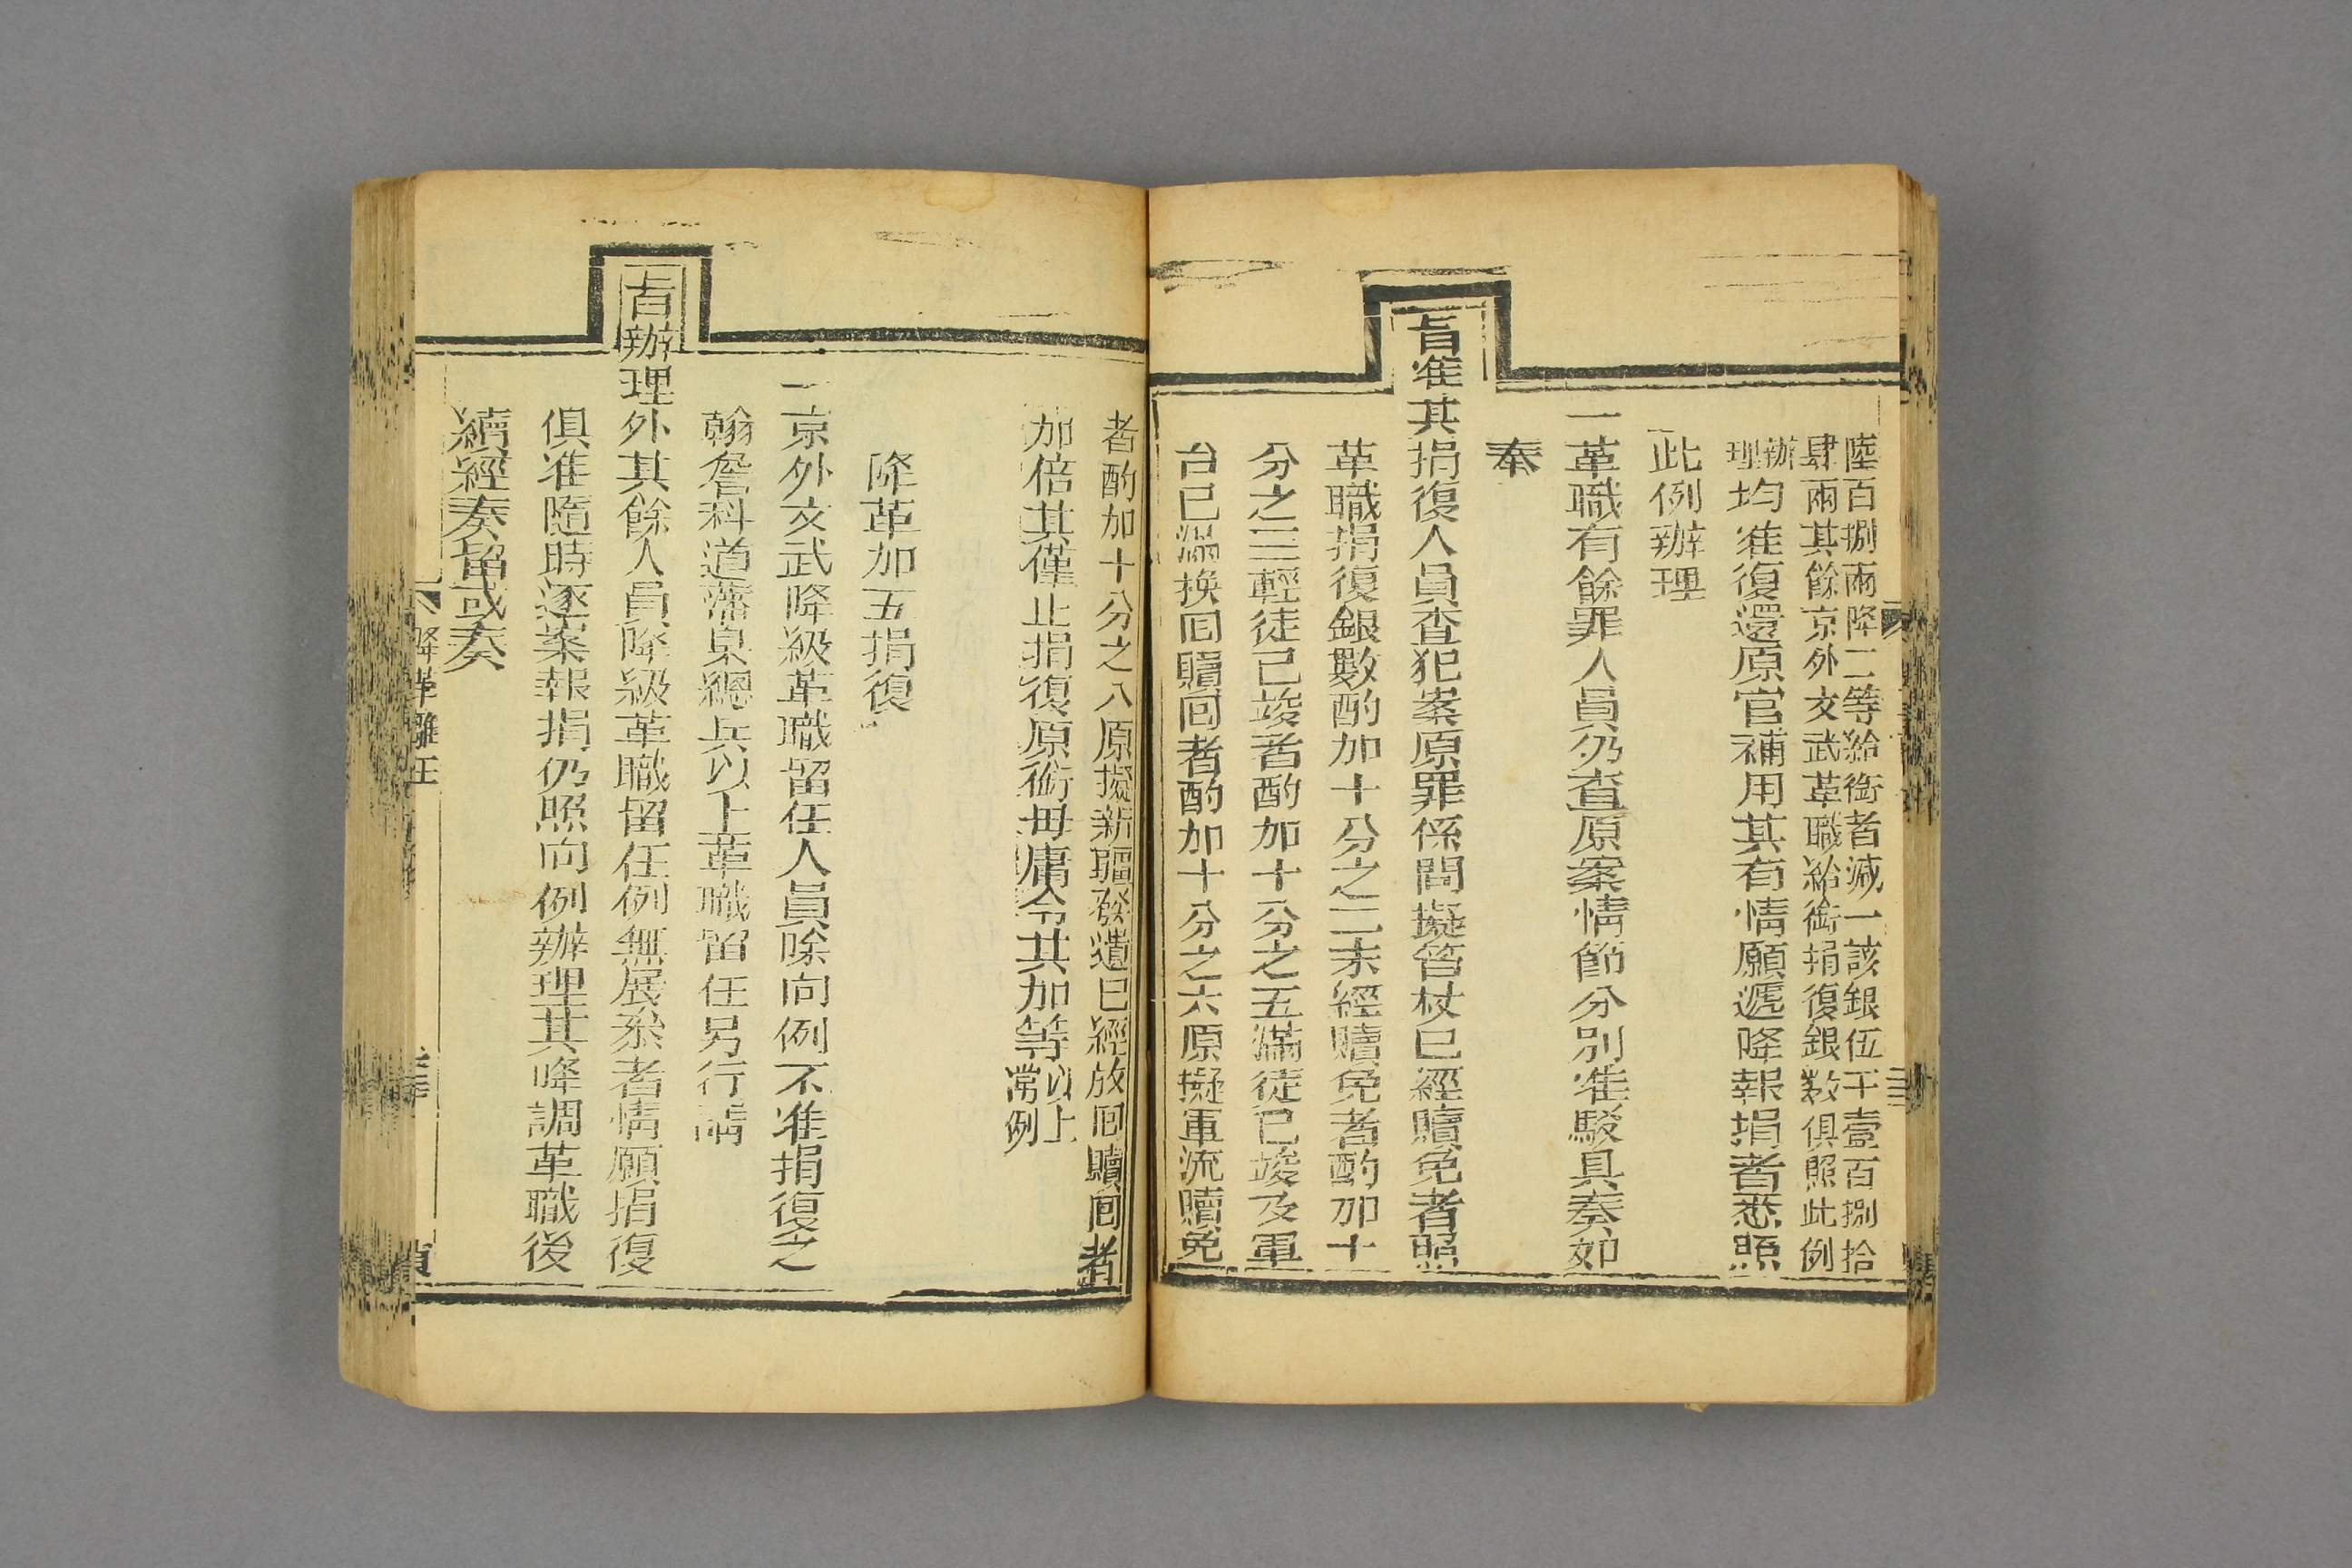 陸百捌兩降二等給銜者減一該銀伍千壹百捌拾
肆兩其餘京外文武革職給銜捐復銀數俱照此例
辦
理均准復還原官補用其有情願遞降報捐者悉照
此例辦理
一革職有餘罪人員仍查原案情節分別准駁具奏如
奉
旨准其捐復人員查犯案原罪係問擬笞杖已經贖免者照
革職捐復銀數酌加十分之二未經贖免者酌加十
分之三輕徒已竣者酌加十分之五滿徒已竣及軍
台已滿換囘贖囘者酌加十分之六原擬軍流贖免
者酌加十分之八原擬新疆發遣已經放囘贖囘者
加倍其僅止捐復原銜毋庸令其加等以上
常例
降革加五捐復
一京外文武降級革職留任人員除向例不准捐復之
翰詹科道藩臬總兵以上革職留任另行請
旨辦理外其餘人員降級革職留任例無展叅者情願捐復
俱准隨時逐案報捐仍照向例辦理其降調革職後
續經奏留或奏
降革離任